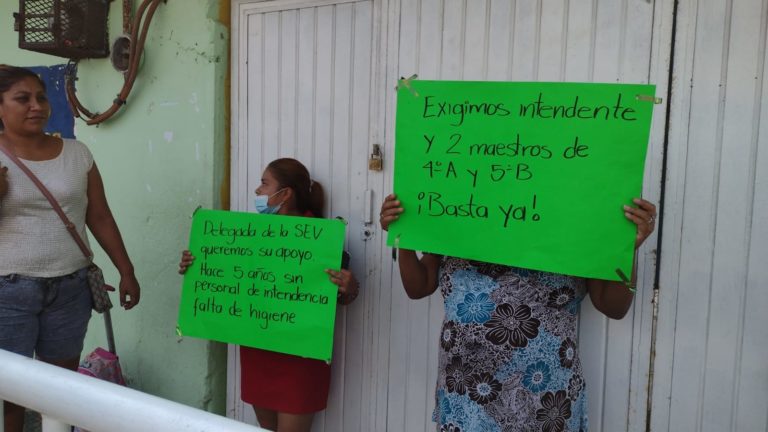 Exigimos intendente
y 2 maestros de
4º A y 5º B
¡Basta ya!
Delegada de la SEV
queremos su apoyo.
Hace 5 años sin
personal de intendencia
falta de higiene